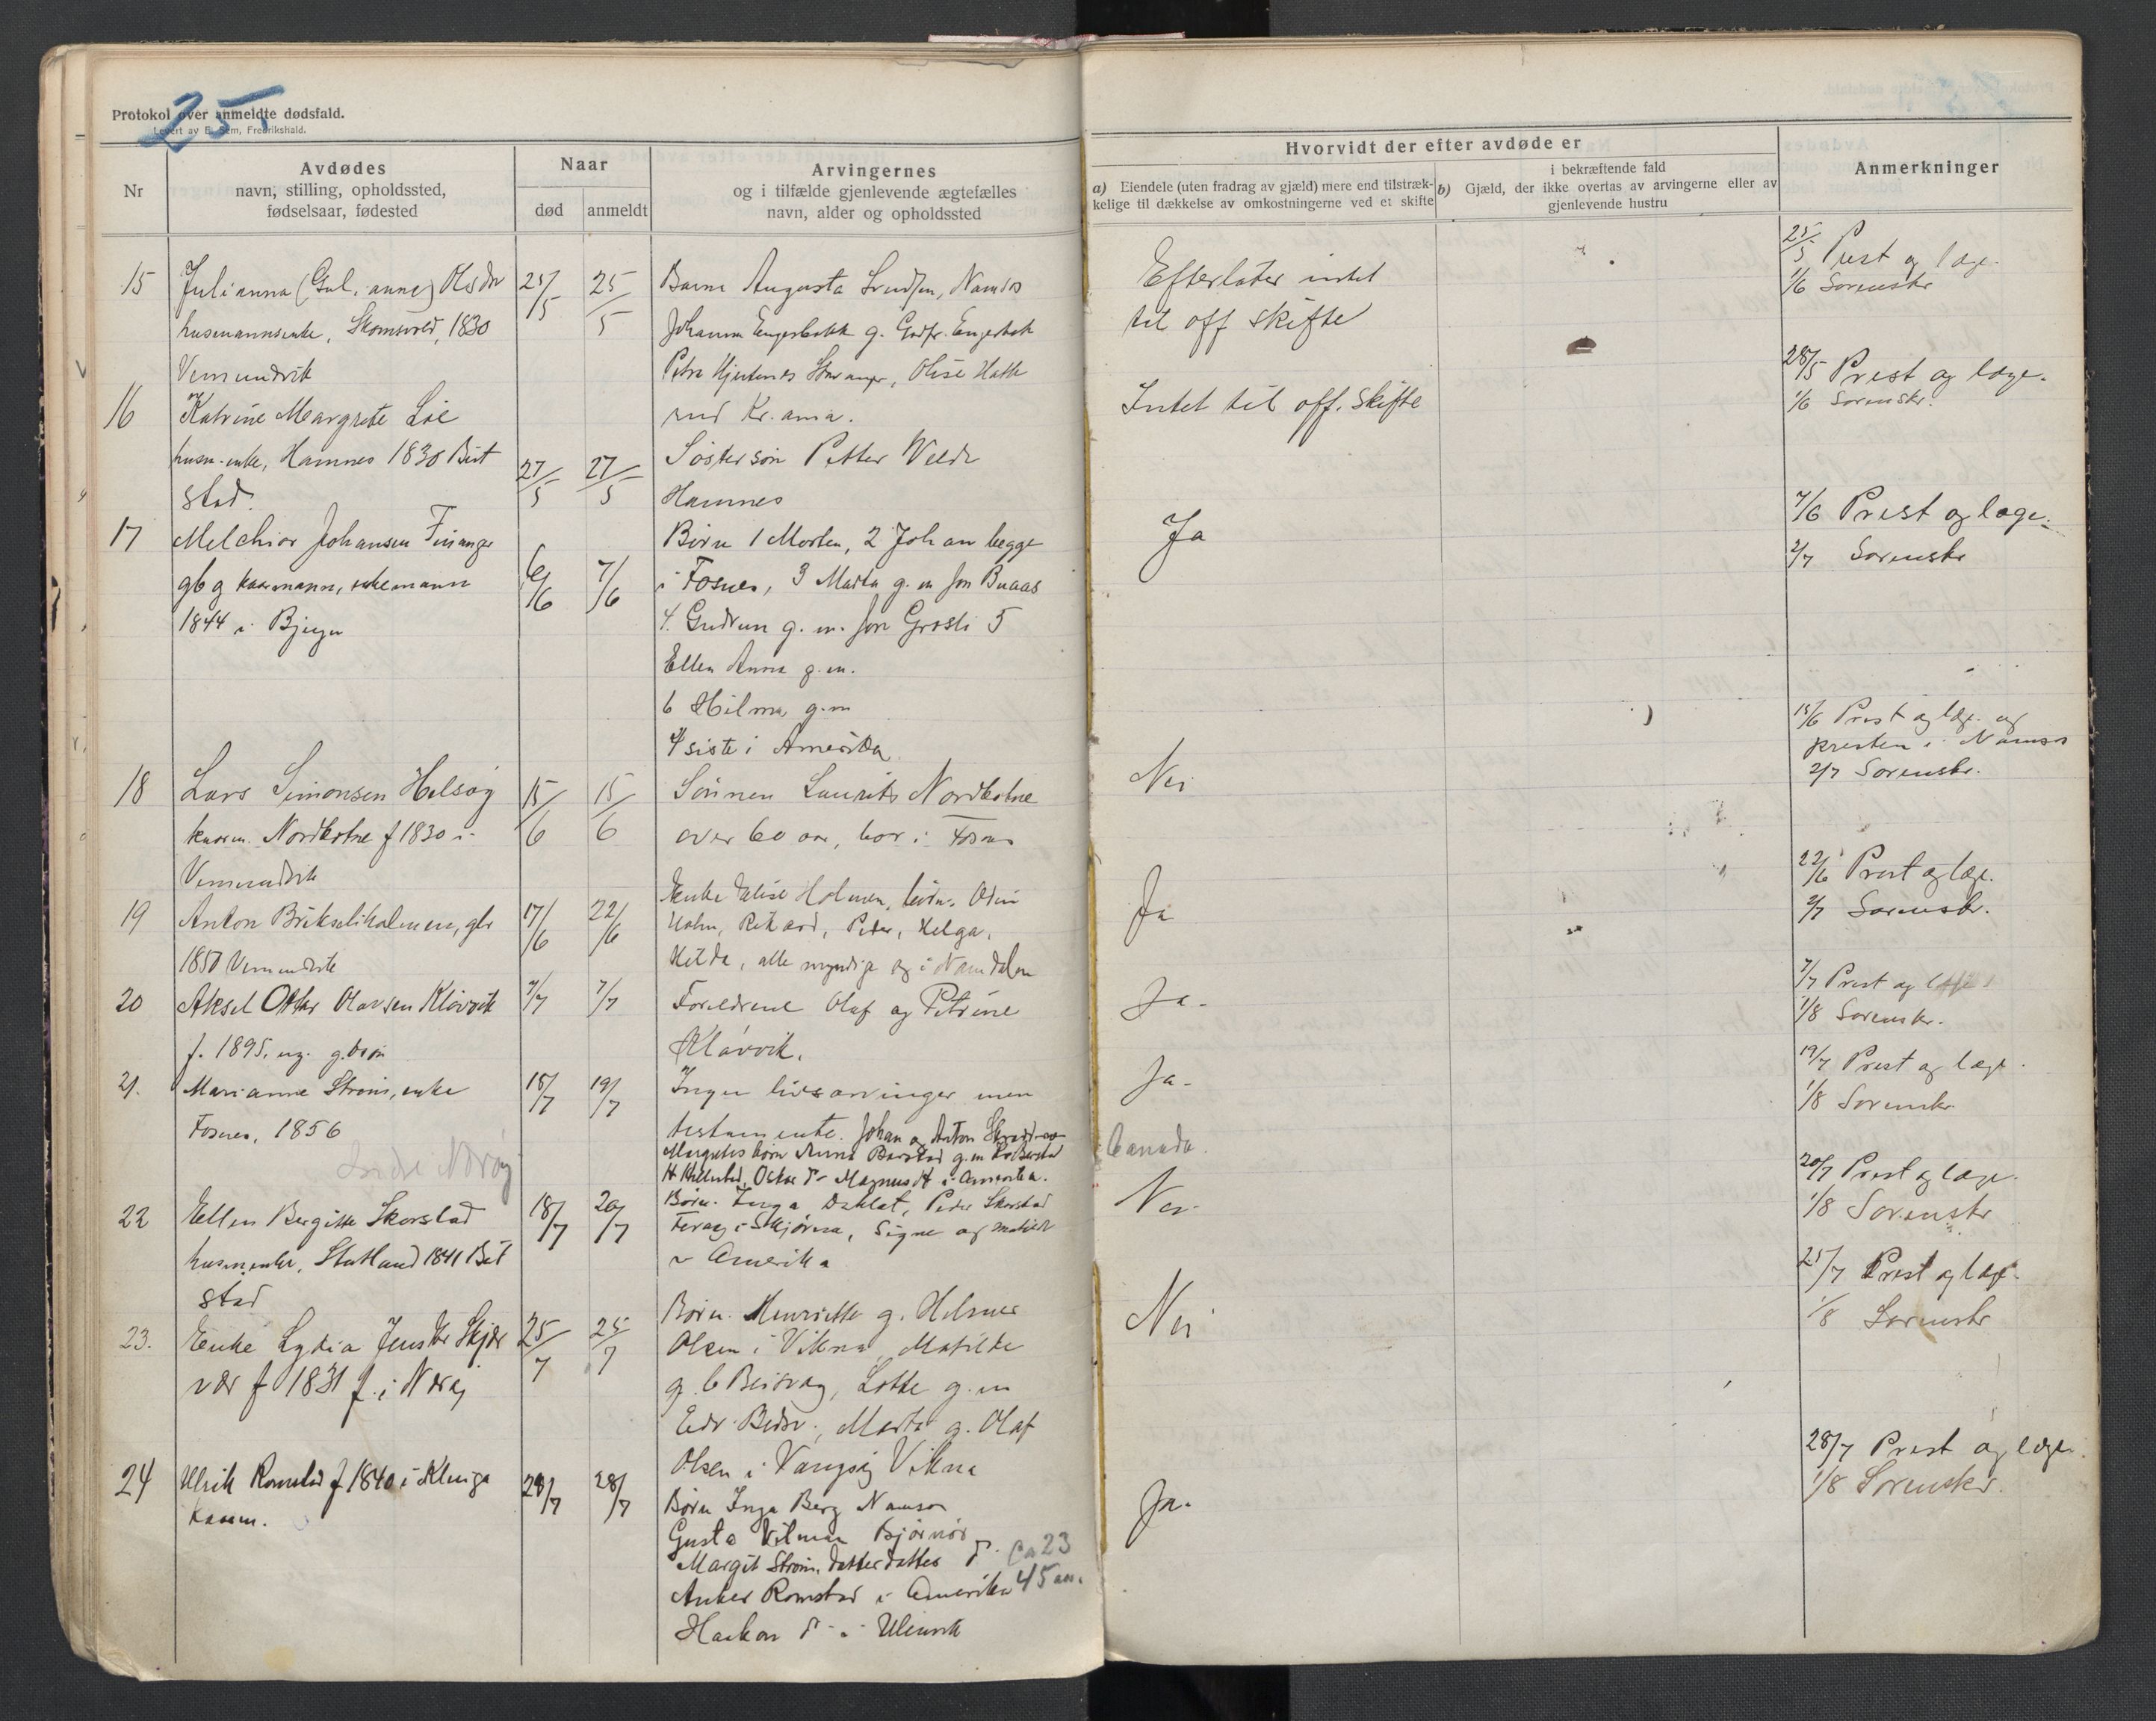 25
Protokol over anmeldte dødsfald.
Levert av E. Sem, Fredrikshald.
Nr
Avdødes
navn, stilling, opholdssted,
fødselsaar, fødested
Naar
død
anmeldt
Arvingernes
og i tilfælde gjenlevende ægtefælles
navn, alder og opholdssted
Hvorvidt der efter avdøde er
a) Eiendele (uten fradrag av gjæld) mere end tilstræk-
kelige til dækkelse av omkostningerne ved et skifte
i bekræftende fald
b) Gjæld, der ikke overtas av arvingerne eller av
gjenlevende hustru
Anmerkninger
15
Julianna (Gulianna) Olsdr
husmannsenke, 1830
Vemundvik
25/5
25/5
Barna Augusta Namsos
Johanna Engesbakk g.
Petra Stavanger, Olise
Kr.ania.
Efterlater intet
til off skifte
25/5 Prest og læge.
1/6 Sorenskr
16
Katrine Margrete Lie
husm.enke, Hamnes 1830 Beit
stad.
27/5
27/5
Søstersøn Petter
Hamnes
Intet til off. skifte
28/5 Prest og læge.
1/6 Sorenskr.
17
Melchior Johansen Finanger
gb og kaarmann, enkemann
1844 i Bjugn
6/6
7/6
Børn 1 Morten, 2 Johan begge
i Fosnes, 3 Marta g.m Jon Buaas
4. Gudrun g.m. Jon Grøsli 5
Ellen Anna g.m.
6 Hilma g.m
4 siste i Amerika
Ja
7/6 Prest og læge.
2/7 Sorenskr
18
Lars Simonsen Helsøy
kaarm. f 1830 i
Vemundvik
15/6
15/6
Sønnen Laurits
over 60 aar, bor i Fosnes
Nei
15/6 Prest og læge og
presten i Namsos
2/7 Sorenskr.
19
Anton gbr
1850 Vemundvik
17/6
22/6
Enke Elise Holmen, børn. Odin
Holm, Rikard, Peder, Helga,
Hilda, alle myndige og i Namdalen
Ja
22/6 Prest og læge.
2/7 Sorenskr.
20
Aksel Olavsen Kløvvik
f. 1895. ug.
7/7
7/7
Foreldrene Olaf og Petrine
Kløvvik.
Ja.
7/7 Prest og læge
1/8 Sorenskr.
21.
Marianne Strøm, enke
Fosnes, 1856
Indre Nærøy
18/7
19/7
Ingen livsarvinger men
testamente. Johan og Anton
Margretes børn Anna g.m
Oskar Magnus i Amerika.
Canada.
Ja.
19/7 Prest og læge.
1/8 Sorenskr
22
Ellen Bergitte Skorstad
husm.enke, Statland 1841 Beit
stad
18/7
20/7
Børn. Inga Peder Skorstad
Signe og
i Amerika
Nei
20/7 Prest og læge.
1/8 Sorenskr
23.
Enke Lydia Skjær
vær f 1831 f. i Nærøy
25/7
25/7
Børn. Henriette g.
Olsen i Vikna Matilde
g. Lotte g.m
Edv. Marta g. Olaf
Olsen i Vikna
Nei
25/7 Prest og læge.
1/8 Sorenskr
24
Ulrik Romstad f 1840 i Klinga
kaarm.
28/7
28/7
Børn Inga Berg Namsos
Gusta Bjørnør
Margit Strøm. datterdatter ca 23
Anker Romstad i Amerika 45 aar.
Haakon
Ja.
28/7 Prest og læge.
1/8 Sorenskr.